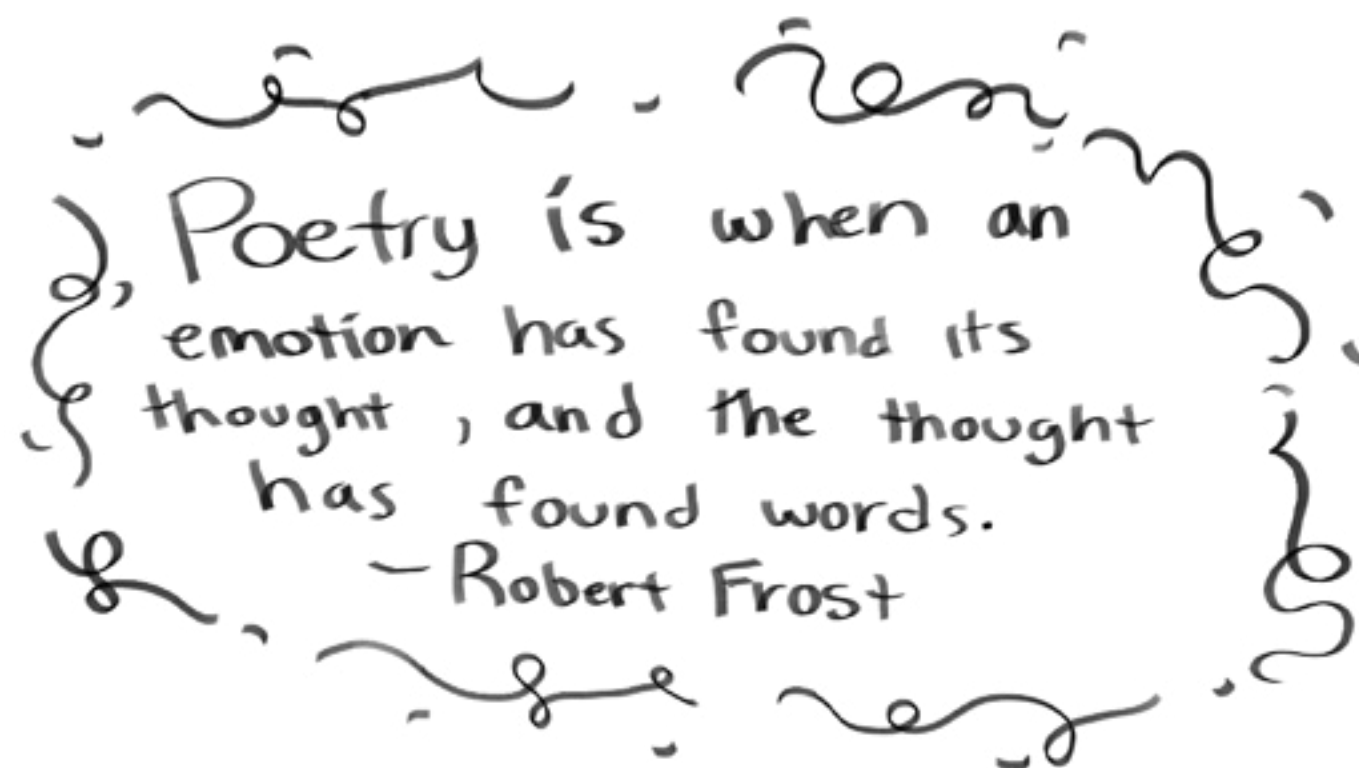 Poetry is when an
emotion has found its
thought, and the thought
has found words.
- Robert Frost